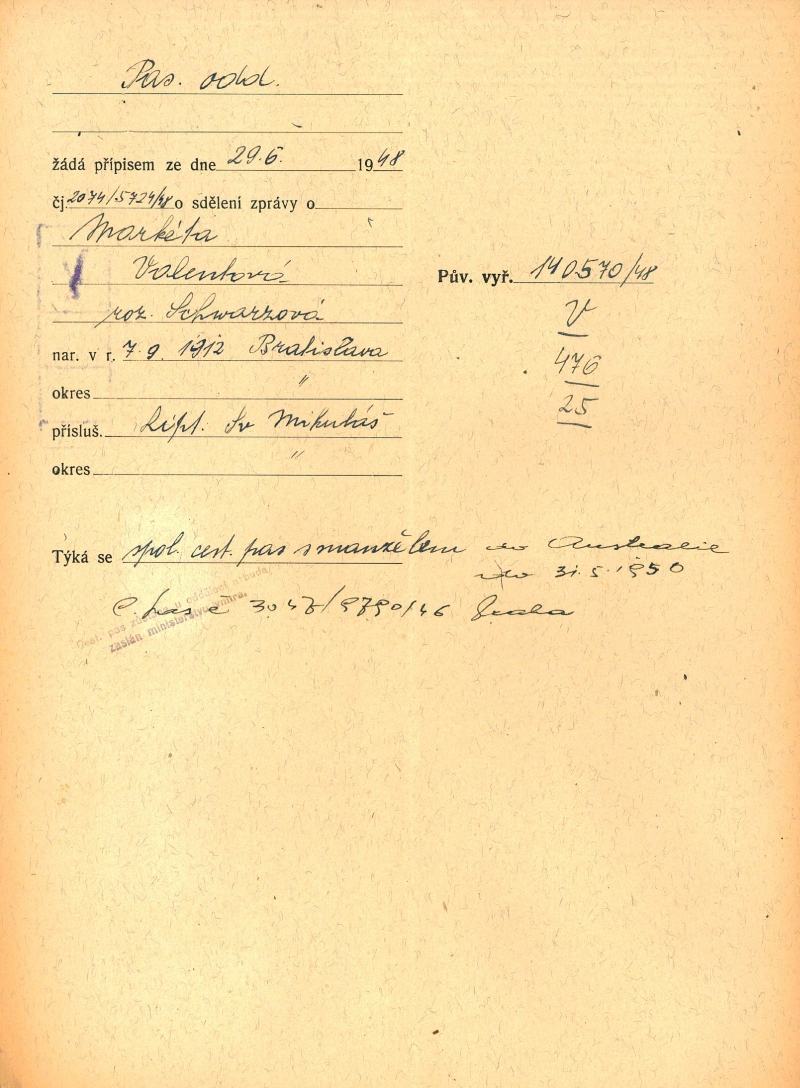 Pas. odd.
žádá přípisem ze dne 29.6. 1948
čj. 2074/5724/48 o sdělení zprávy o
Markéta
Valentová
roz. Schwarzová
nar. v r. 7.9. 1912 Bratislava
okres "
přísluš. Lipt. Sv Mikuláš
okres "
Pův. vyř. 140570/48
V
476
25
Týká se spol. cest. pas s manželem do Australie
do 31.5.1950
C. pas č 3047/9790/46 Praha
Cest. pas zůstal u oddělení a bude
zaslán ministerstvu vnitra.